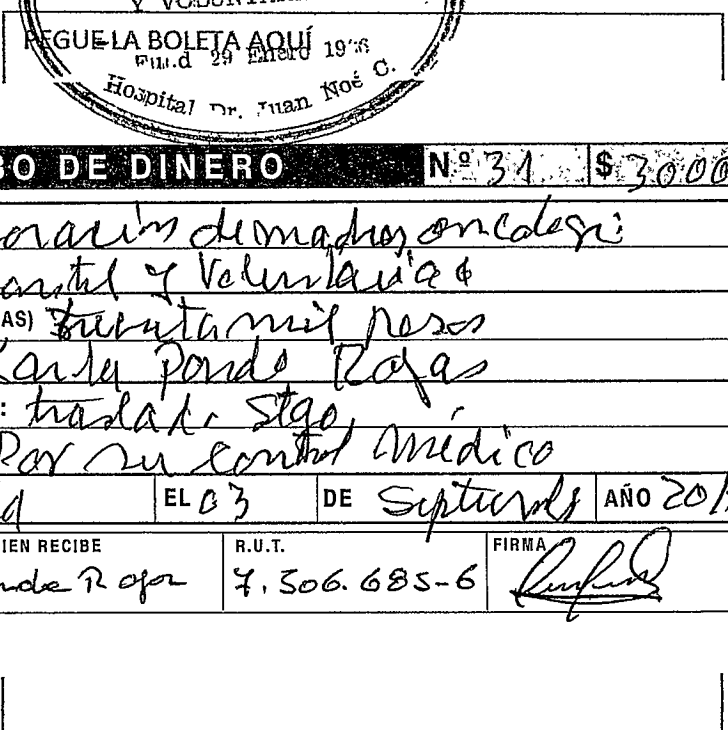 Y VOLUNTARIA
PEGUE LA BOLETA AQUÍ
Fund 29 Enero 19
Hospital Dr. Juan Noé C.
BO DE DINERO Nº 31 $ 3000
de madres oncologi
y Voluntaria
AS) treinta mil pesos
Karla Ponde Rojas
: traslado Stgo,
Por su control médico
EL 03 DE Septiembre AÑO 201
IEN RECIBE R.U.T. FIRMA
nde Rojas 7.506.685-6